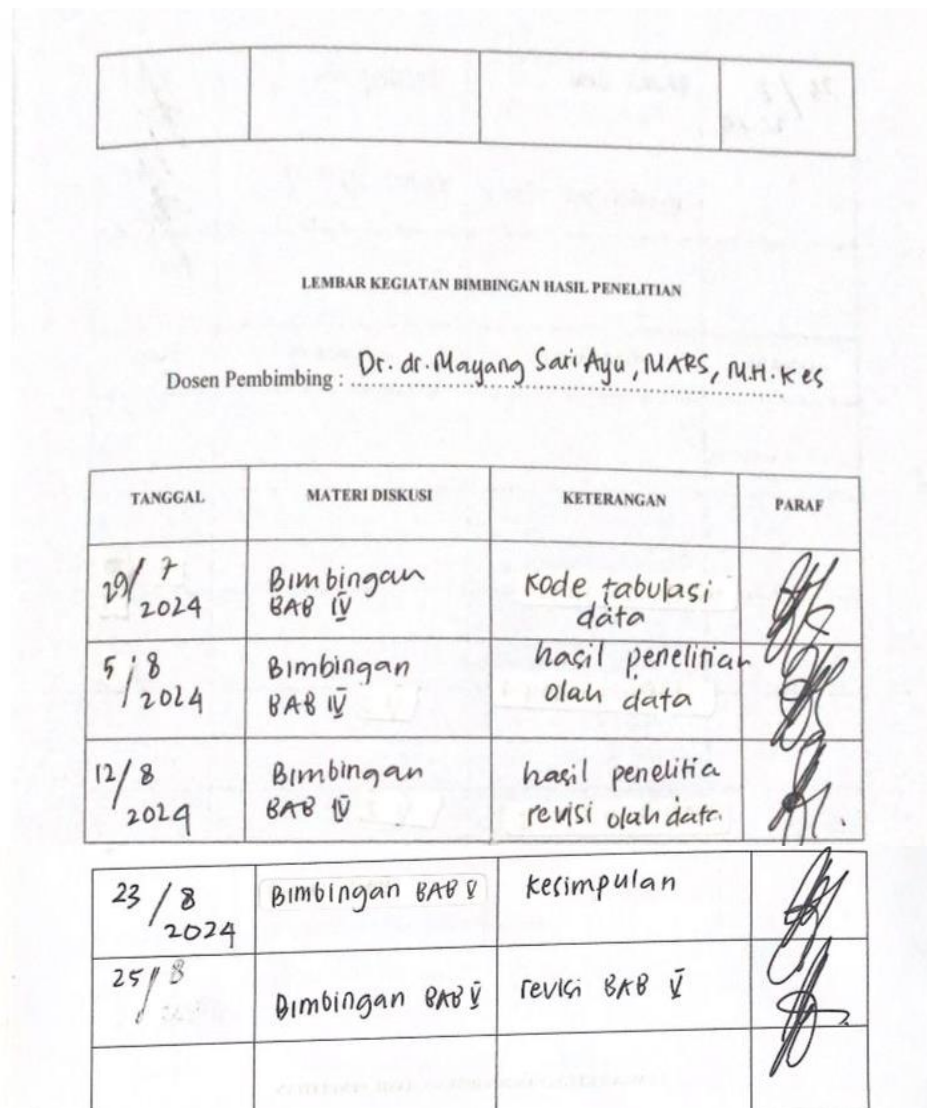 LEMBAR KEGIATAN BIMBINGAN HASIL PENELITIAN
Dosen Pembimbing : Dr. dr. Mayang Sari Ayu, MARS, M.H. Kes
TANGGAL MATERI DISKUSI KETERANGAN PARAF
29/7 2024
Bimbingan
BAB IV
Kode tabulasi
data
5/8 2024
Bimbingan
BAB IV
hasil penelitian
olah data
12/8 2024
Bimbingan
BAB IV
hasil penelitia
revisi olah data
23/8 2024
Bimbingan BAB V
Kesimpulan
25/8
Bimbingan BAB V
revisi BAB V